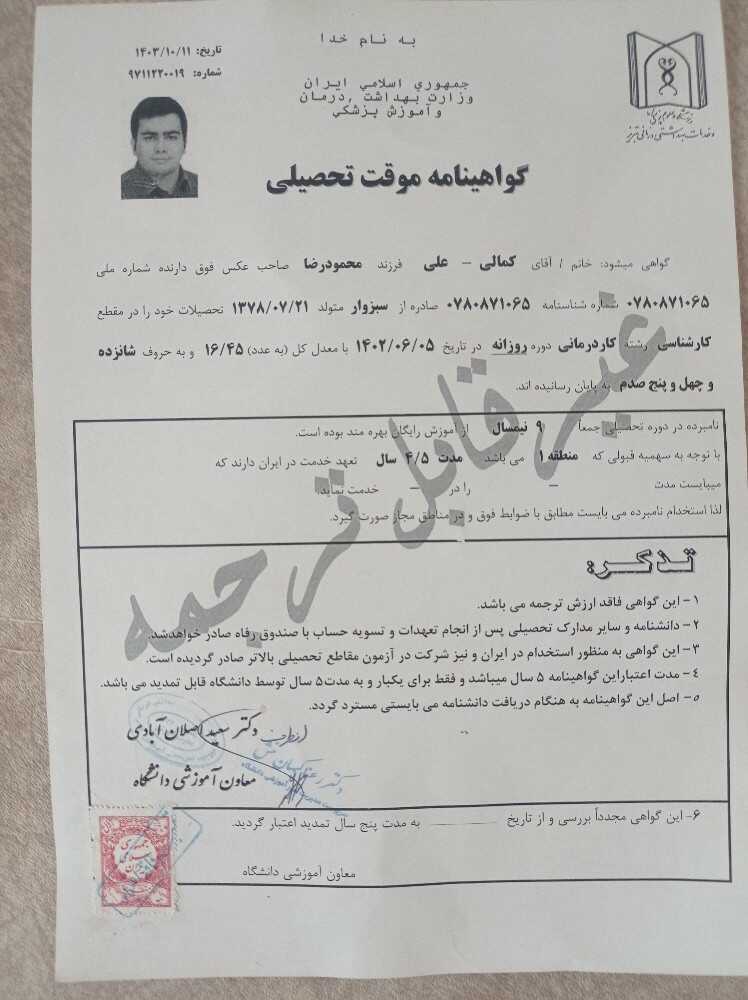 به نام خدا
تاریخ: ۱۴۰۳/۱۰/۱۱
شماره: ۹۷۱۱۲۲۰۰۱۹
جمهوري اسلامي ايران
وزارت بهداشت ,درمان
وآموزش پزشكي
وخدمات بهداشتی درمانی تبریز
گواهینامه موقت تحصیلی
گواهی میشود: خانم / آقای کمالی – علی فرزند محمودرضا صاحب عکس فوق دارنده شماره ملی
۰۷۸۰۸۷۱۰۶۵ شماره شناسنامه ۰۷۸۰۸۷۱۰۶۵ صادره از سبزوار متولد ۱۳۷۸/۰۷/۲۱ تحصیلات خود را در مقطع
کارشناسی رشته کاردرمانی دوره روزانه در تاریخ ۱۴۰۲/۰۶/۰۵ با معدل کل (به عدد) ۱۶/۴۵ و به حروف شانزده
و چهل و پنج صدم به پایان رسانیده اند.
نامبرده در دوره تحصیلی جمعاً ۹ نیمسال از آموزش رایگان بهره مند بوده است.
با توجه به سهمیه قبولی که منطقه ۱ می باشد مدت ۴/۵ سال تعهد خدمت در ایران دارند که
میبایست مدت – را در – خدمت نماید.
لذا استخدام نامبرده می بایست مطابق با ضوابط فوق و در مناطق مجاز صورت گیرد.
غیر قابل ترجمه
تذکر:
۱- این گواهی فاقد ارزش ترجمه می باشد.
۲- دانشنامه و سایر مدارک تحصیلی پس از انجام تعهدات و تسویه حساب با صندوق رفاه صادر خواهدشد.
۳- این گواهی به منظور استخدام در ایران و نیز شرکت در آزمون مقاطع تحصیلی بالاتر صادر گردیده است.
۴- مدت اعتباراین گواهینامه ۵ سال میباشد و فقط برای یکبار و به مدت۵ سال توسط دانشگاه قابل تمدید می باشد.
۵- اصل این گواهینامه به هنگام دریافت دانشنامه می بایستی مسترد گردد.
از طرف دکتر سعید اصلان آبادی
معاون آموزشی دانشگاه
۶- این گواهی مجدداً بررسی و از تاریخ به مدت پنج سال تمدید اعتبار گردید.
معاون آموزشی دانشگاه